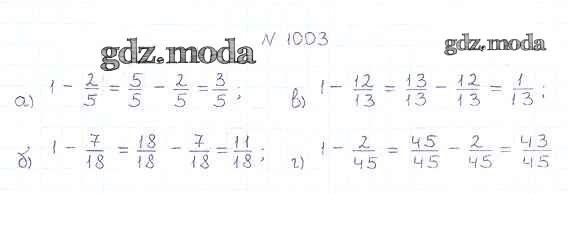 gdz.moda
N 1003
gdz.moda
а) 1 - 2/5 = 5/5 - 2/5 = 3/5 ;
в) 1 - 12/13 = 13/13 - 12/13 = 1/13 ;
б) 1 - 7/18 = 18/18 - 7/18 = 11/18 ;
г) 1 - 2/45 = 45/45 - 2/45 = 43/45